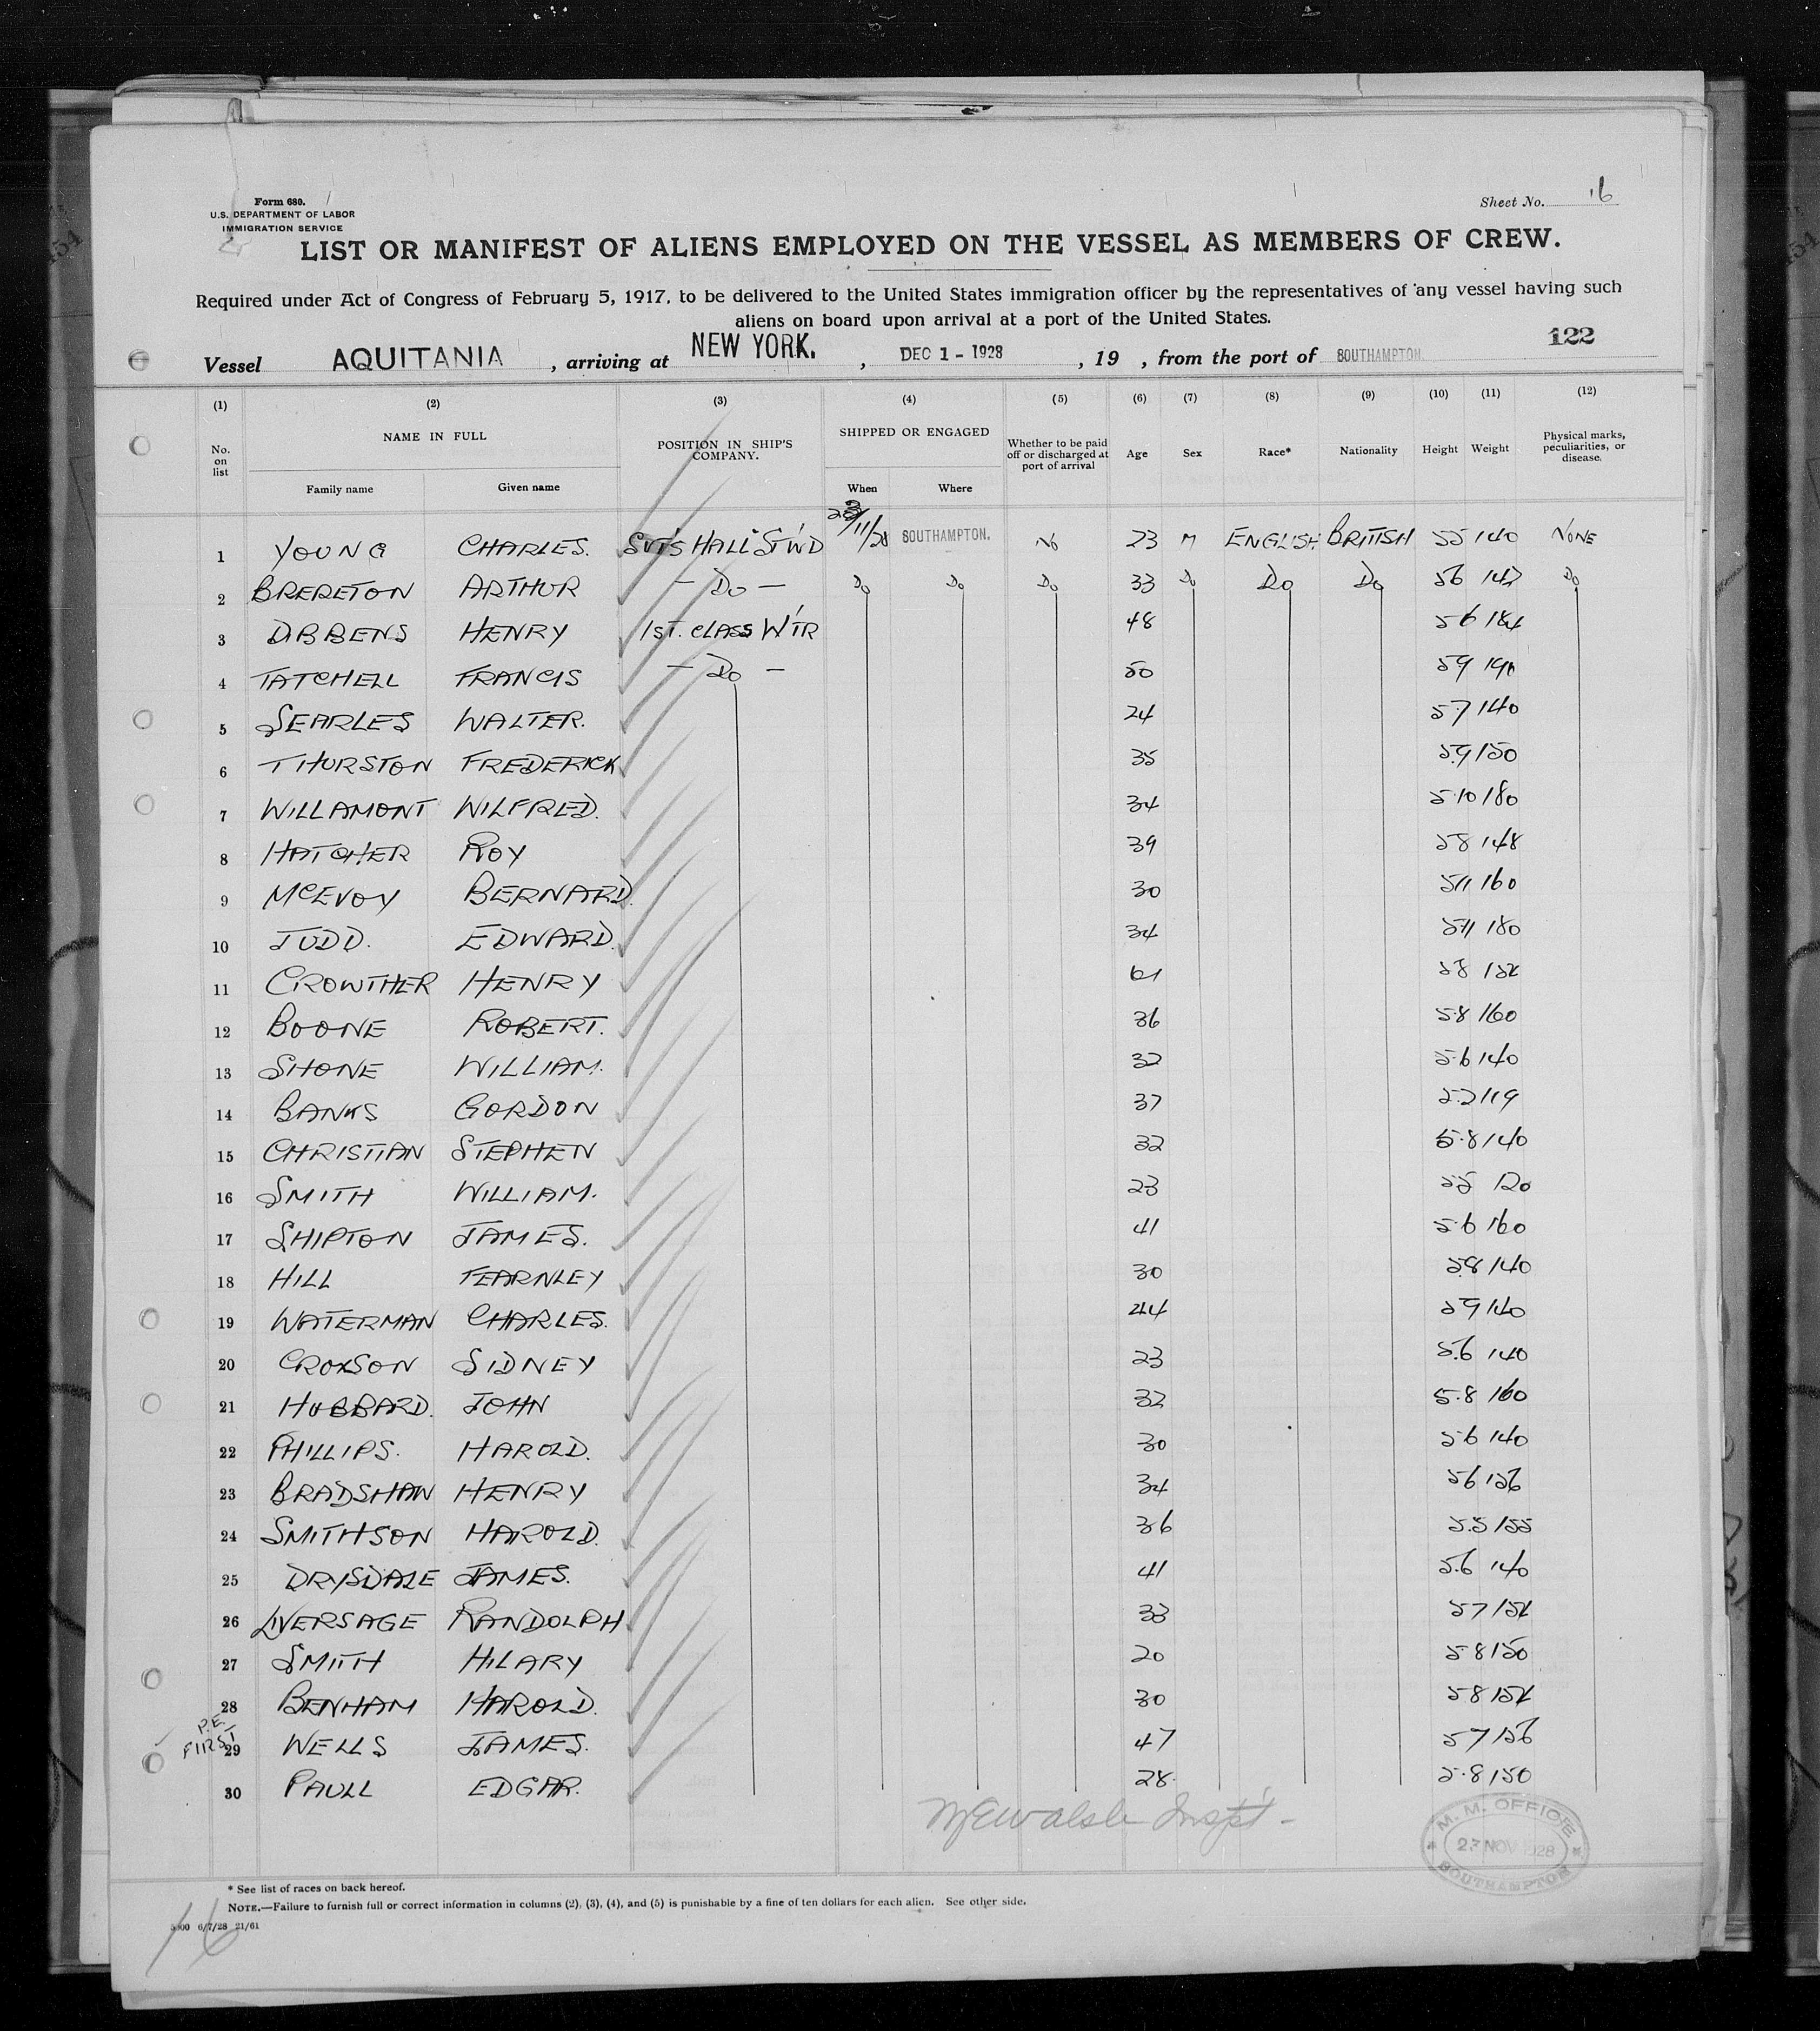 Form 680.
U.S. DEPARTMENT OF LABOR
IMMIGRATION SERVICE
Sheet No. 16
LIST OR MANIFEST OF ALIENS EMPLOYED ON THE VESSEL AS MEMBERS OF CREW.
Required under Act of Congress of February 5, 1917, to be delivered to the United States immigration officer by the representatives of any vessel having such
aliens on board upon arrival at a port of the United States.
122
Vessel AQUITANIA, arriving at NEW YORK., DEC 1 - 1928, 19 , from the port of SOUTHAMPTON.
(1) (2) (3) (4) (5) (6) (7) (8) (9) (10) (11) (12)
No. on list NAME IN FULL Family name Given name POSITION IN SHIP'S COMPANY. SHIPPED OR ENGAGED When Where Whether to be paid off or discharged at port of arrival Age Sex Race* Nationality Height Weight Physical marks, peculiarities, or disease.
1 YOUNG CHARLES. HALL ST'W'D /11/28 SOUTHAMPTON. No 23 M ENGLISH BRITISH 55 140 NONE
2 BRERETON ARTHUR — Do — Do Do Do 33 Do Do Do 56 147 Do
3 DIBBENS HENRY 1ST. CLASS W'TR 48 56 184
4 TATCHELL FRANCIS — Do — 50 59 190
5 SEARLES WALTER. 24 57 140
6 THURSTON FREDERICK 35 5.9 150
7 WILLAMONT WILFRED. 34 5.10 180
8 HATCHER ROY 39 58 148
9 MCEVOY BERNARD. 30 511 160
10 JUDD. EDWARD. 34 511 180
11 CROWTHER HENRY 61 58
12 BOONE ROBERT. 36 5.8 160
13 SHONE WILLIAM. 32 5.6 140
14 BANKS GORDON 37 5.2 119
15 CHRISTIAN STEPHEN 32 5.8 140
16 SMITH WILLIAM. 23 55 120
17 SHIPTON JAMES. 41 5.6 160
18 HILL FEARNLEY 30 5.8 140
19 WATERMAN CHARLES. 44 59 140
20 CROXSON SIDNEY 23 5.6 140
21 HUBBARD. JOHN 32 5.8 160
22 PHILLIPS. HAROLD. 30 5.6 140
23 BRADSHAW HENRY 34 56 156
24 SMITHSON HAROLD. 36 5.5 155
25 DRYSDALE JAMES. 41 5.6 140
26 LIVERSAGE RANDOLPH 33 57
27 SMITH HILARY 20 58 150
28 BENHAM HAROLD. 30 58
P.E. FIRST 29 WELLS JAMES. 47 57 156
30 PAULL EDGAR. 28. 5.8 150
M.M. OFFICE
27 NOV 1928
SOUTHAMPTON
* See list of races on back hereof.
NOTE.—Failure to furnish full or correct information in columns (2), (3), (4), and (5) is punishable by a fine of ten dollars for each alien. See other side.
6/7/28 21/61
16